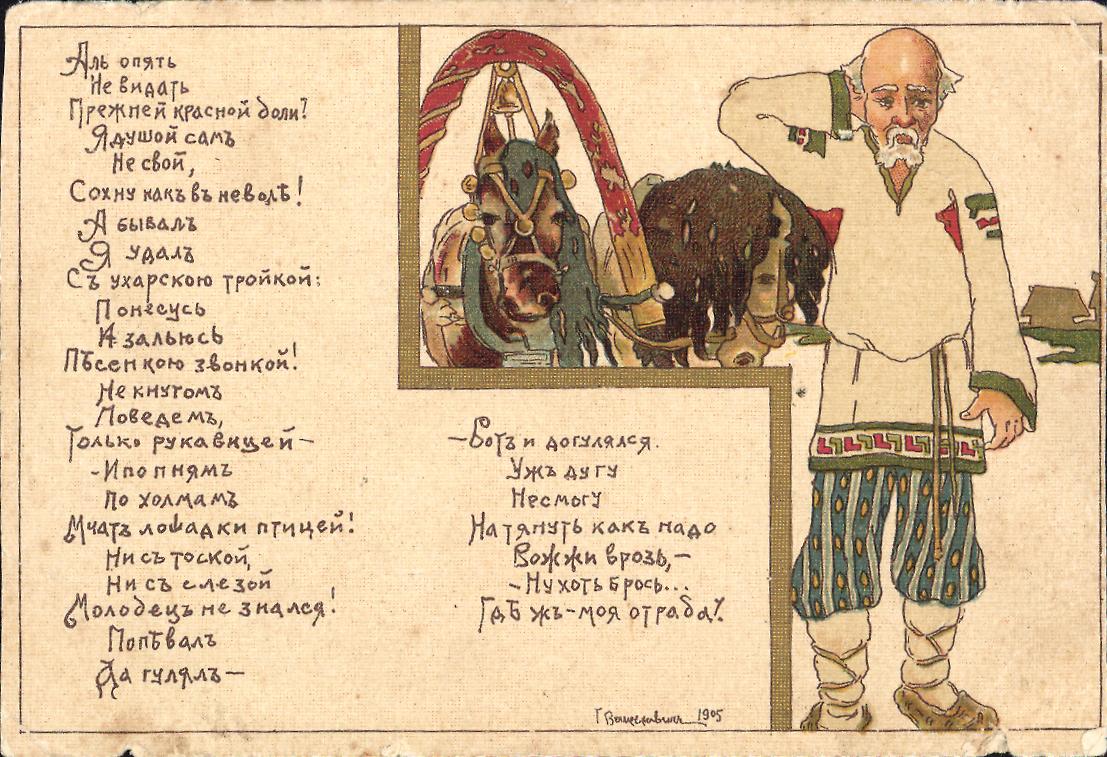 Аль опять
Не видать
Прежней красной доли?
Я душой самъ
Не свой,
Сохну какъ въ неволѣ!
А бывалъ
Я удалъ
Съ ухарскою тройкой:
Понесусь
И зальюсь
Пѣсенкою звонкой!
Не кнутомъ
Поведемъ,
Только рукавицей —
- И по пнямъ
по холмамъ
Мчатъ лошадки птицей!
Ни съ тоской,
Ни съ слезой
Молодецъ не знался!
Попѣвалъ
Да гулялъ —
— Вотъ и догулялся.
Ужъ дугу
Не смогу
Натянуть какъ надо
Вожжи врозь, —
- Ну хоть брось...
Гдѣ жъ - моя отрада?
1905